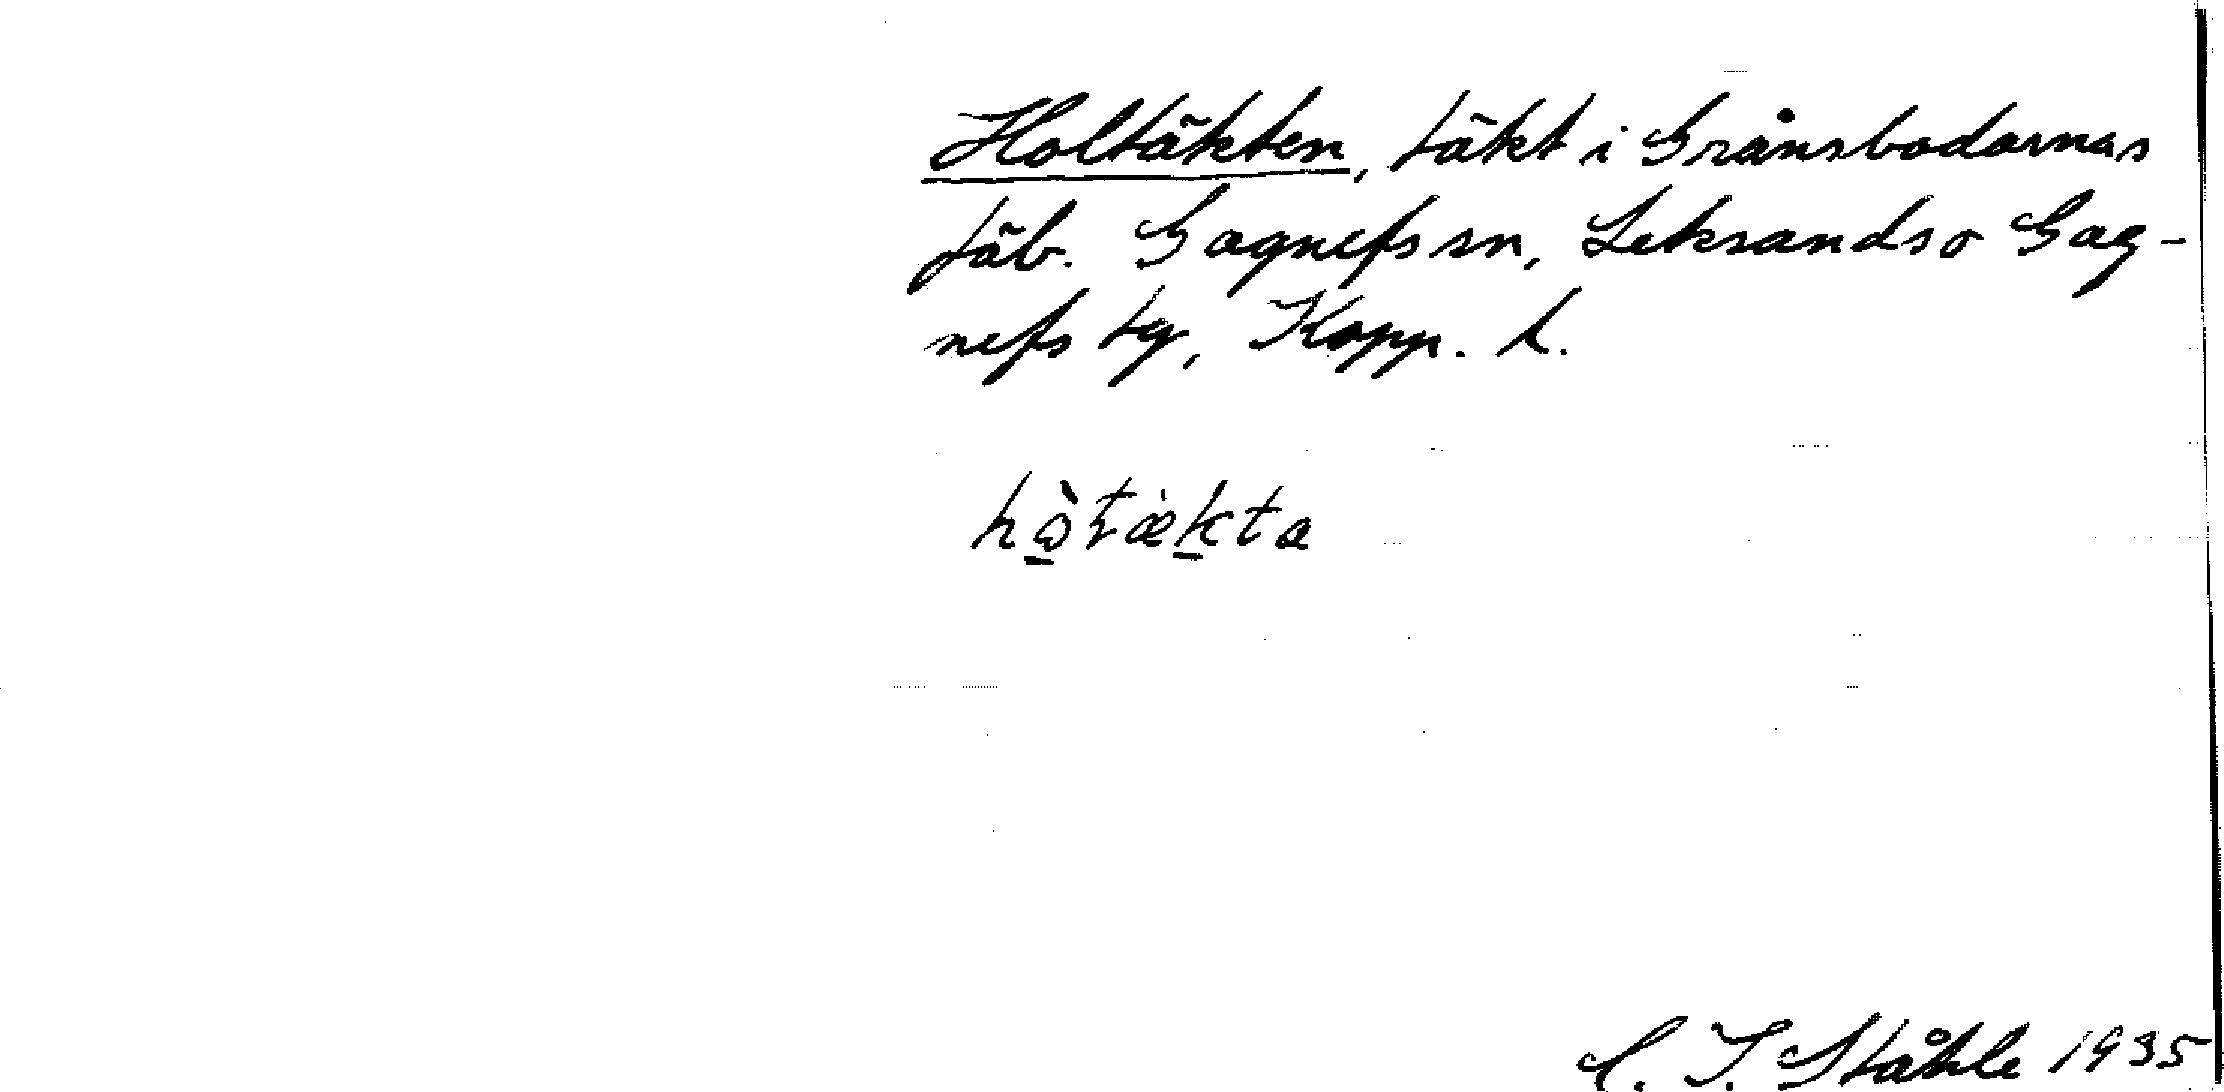 Holtäkten, täkt i Grånsbodarnas
fäb. Gagnefs sn, Leksands o Gag-
nefs tg, Kopp. l.
hò̱tæḵta
C. I. Ståhle 1935